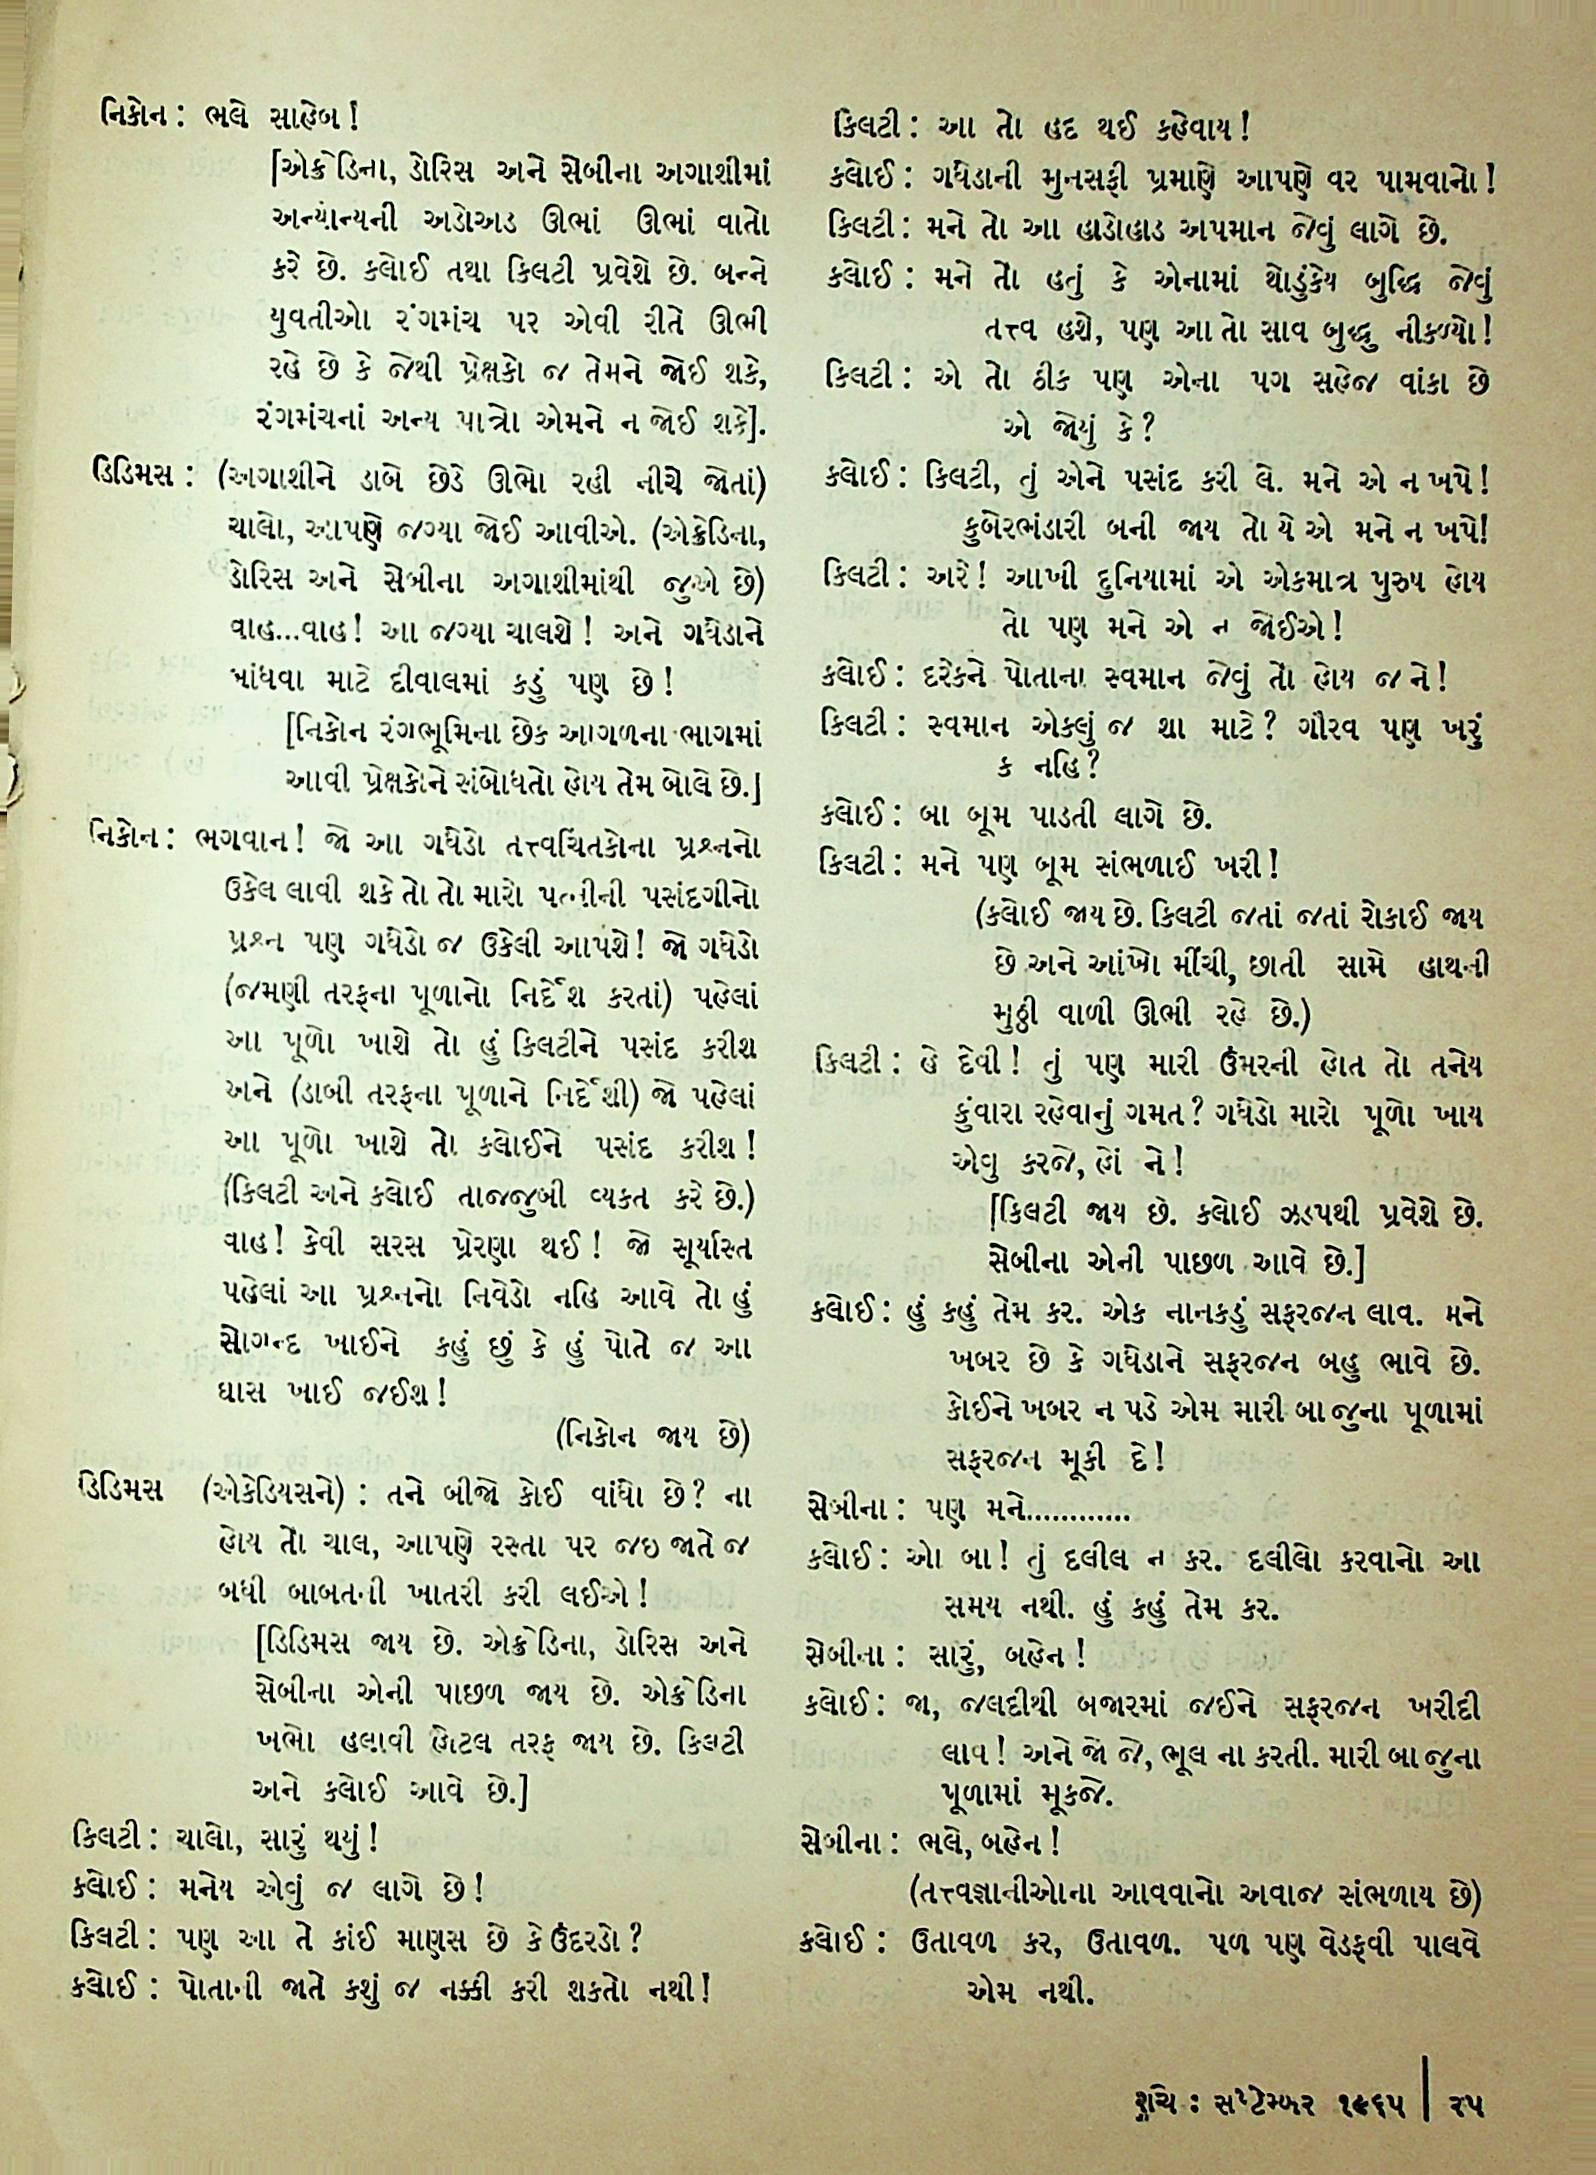 નિકોન : ભલે સાહેબ !
[એક્રેડિના, ડોરિસ અને સૅબીના અગાશીમાં
અન્યોન્યની અડોઅડ ઊભાં ઊભાં વાતો
કરે છે. ક્લોઈ તથા કિલટી પ્રવેશે છે. બન્ને
યુવતીઓ રંગમંચ પર એવી રીતે ઊભી
રહે છે કે જેથી પ્રેક્ષકો જ તેમને જોઈ શકે,
રંગમંચનાં અન્ય પાત્રો એમને ન જોઈ શકે].
ડિડિમસ : (અગાશીને ડાબે છેડે ઊભો રહી નીચે જોતાં)
ચાલો, આપણે જગ્યા જોઈ આવીએ. (એક્રેડિના,
ડોરિસ અને સૅબીના અગાશીમાંથી જુએ છે)
વાહ...વાહ! આ જગ્યા ચાલશે! અને ગધેડાને
બાંધવા માટે દીવાલમાં કડું પણ છે!
[નિકોન રંગભૂમિના છેક આગળના ભાગમાં
આવી પ્રેક્ષકોને સંબોધતો હોય તેમ બોલે છે.]
નિકોન : ભગવાન! જો આ ગધેડો તત્ત્વચિંતકોના પ્રશ્નનો
ઉકેલ લાવી શકે તો તો મારો પત્નીની પસંદગીનો
પ્રશ્ન પણ ગધેડો જ ઉકેલી આપશે! જો ગધેડો
(જમણી તરફના પૂળાનો નિર્દેશ કરતાં) પહેલાં
આ પૂળો ખાશે તો હું કિલટીને પસંદ કરીશ
અને (ડાબી તરફના પૂળાને નિર્દેશી) જો પહેલાં
આ પૂળો ખાશે તો ક્લોઈને પસંદ કરીશ!
(કિલટી અને ક્લોઈ તાજ્જુબી વ્યક્ત કરે છે.)
વાહ! કેવી સરસ પ્રેરણા થઈ! જો સૂર્યાસ્ત
પહેલાં આ પ્રશ્નનો નિવેડો નહિ આવે તો હું
સોગન્દ ખાઈને કહું છું કે હું પોતે જ આ
ઘાસ ખાઈ જઈશ!
(નિકોન જાય છે)
ડિડિમસ (એક્રેડિયસને) : તને બીજો કોઈ વાંધો છે? ના
હોય તો ચાલ, આપણે રસ્તા પર જઇ જાતે જ
બધી બાબતની ખાતરી કરી લઈએ!
[ડિડિમસ જાય છે. એક્રેડિના, ડોરિસ અને
સૅબીના એની પાછળ જાય છે. એક્રેડિના
ખભો હલાવી હોટલ તરફ જાય છે. કિલટી
અને ક્લોઈ આવે છે.]
કિલટી : ચાલો, સારું થયું!
ક્લોઈ : મનેય એવું જ લાગે છે!
કિલટી : પણ આ તે કાંઈ માણસ છે કે ઉંદરડો?
ક્લોઈ : પોતાની જાતે કશું જ નક્કી કરી શકતો નથી!
કિલટી : આ તો હદ થઈ કહેવાય!
ક્લોઈ : ગધેડાની મુનસફી પ્રમાણે આપણે વર પામવાનો!
કિલટી : મને તો આ હાડોહાડ અપમાન જેવું લાગે છે.
ક્લોઈ : મને તો હતું કે એનામાં થોડુંકેય બુદ્ધિ જેવું
તત્ત્વ હશે, પણ આ તો સાવ બુદ્ધુ નીકળ્યો!
કિલટી : એ તો ઠીક પણ એના પગ સહેજ વાંકા છે
એ જોયું કે?
ક્લોઈ : કિલટી, તું એને પસંદ કરી લે. મને એ ન ખપે!
કુબેરભંડારી બની જાય તો યે એ મને ન ખપે!
કિલટી : અરે! આખી દુનિયામાં એ એકમાત્ર પુરુષ હોય
તો પણ મને એ ન જોઈએ!
ક્લોઈ : દરેકને પોતાના સ્વમાન જેવું તો હોય જ ને!
કિલટી : સ્વમાન એકલું જ શા માટે? ગૌરવ પણ ખરું
ક નહિ?
ક્લોઈ : બા બૂમ પાડતી લાગે છે.
કિલટી : મને પણ બૂમ સંભળાઈ ખરી!
(ક્લોઈ જાય છે. કિલટી જતાં જતાં રોકાઈ જાય
છે અને આંખો મીંચી, છાતી સામે હાથની
મુઠ્ઠી વાળી ઊભી રહે છે.)
કિલટી : હે દેવી! તું પણ મારી ઉંમરની હોત તો તનેય
કુંવારા રહેવાનું ગમત? ગધેડો મારો પૂળો ખાય
એવુ કરજે, હોં ને!
[કિલટી જાય છે. ક્લોઈ ઝડપથી પ્રવેશે છે.
સૅબીના એની પાછળ આવે છે.]
ક્લોઈ : હું કહું તેમ કર. એક નાનકડું સફરજન લાવ. મને
ખબર છે કે ગધેડાને સફરજન બહુ ભાવે છે.
કોઈને ખબર ન પડે એમ મારી બાજુના પૂળામાં
સફરજન મૂકી દે!
સૅબીના : પણ મને............
ક્લોઈ : ઓ બા! તું દલીલ ન કર. દલીલો કરવાનો આ
સમય નથી. હું કહું તેમ કર.
સૅબીના : સારું, બહેન!
ક્લોઈ : જા, જલદીથી બજારમાં જઈને સફરજન ખરીદી
લાવ! અને જો જે, ભૂલ ના કરતી. મારી બાજુના
પૂળામાં મૂકજે.
સૅબીના : ભલે, બહેન!
(તત્ત્વજ્ઞાનીઓના આવવાનો અવાજ સંભળાય છે)
ક્લોઈ : ઉતાવળ કર, ઉતાવળ. પળ પણ વેડફવી પાલવે
એમ નથી.
રુચિ : સપ્ટેમ્બર ૧૯૬૫ | ૨૫